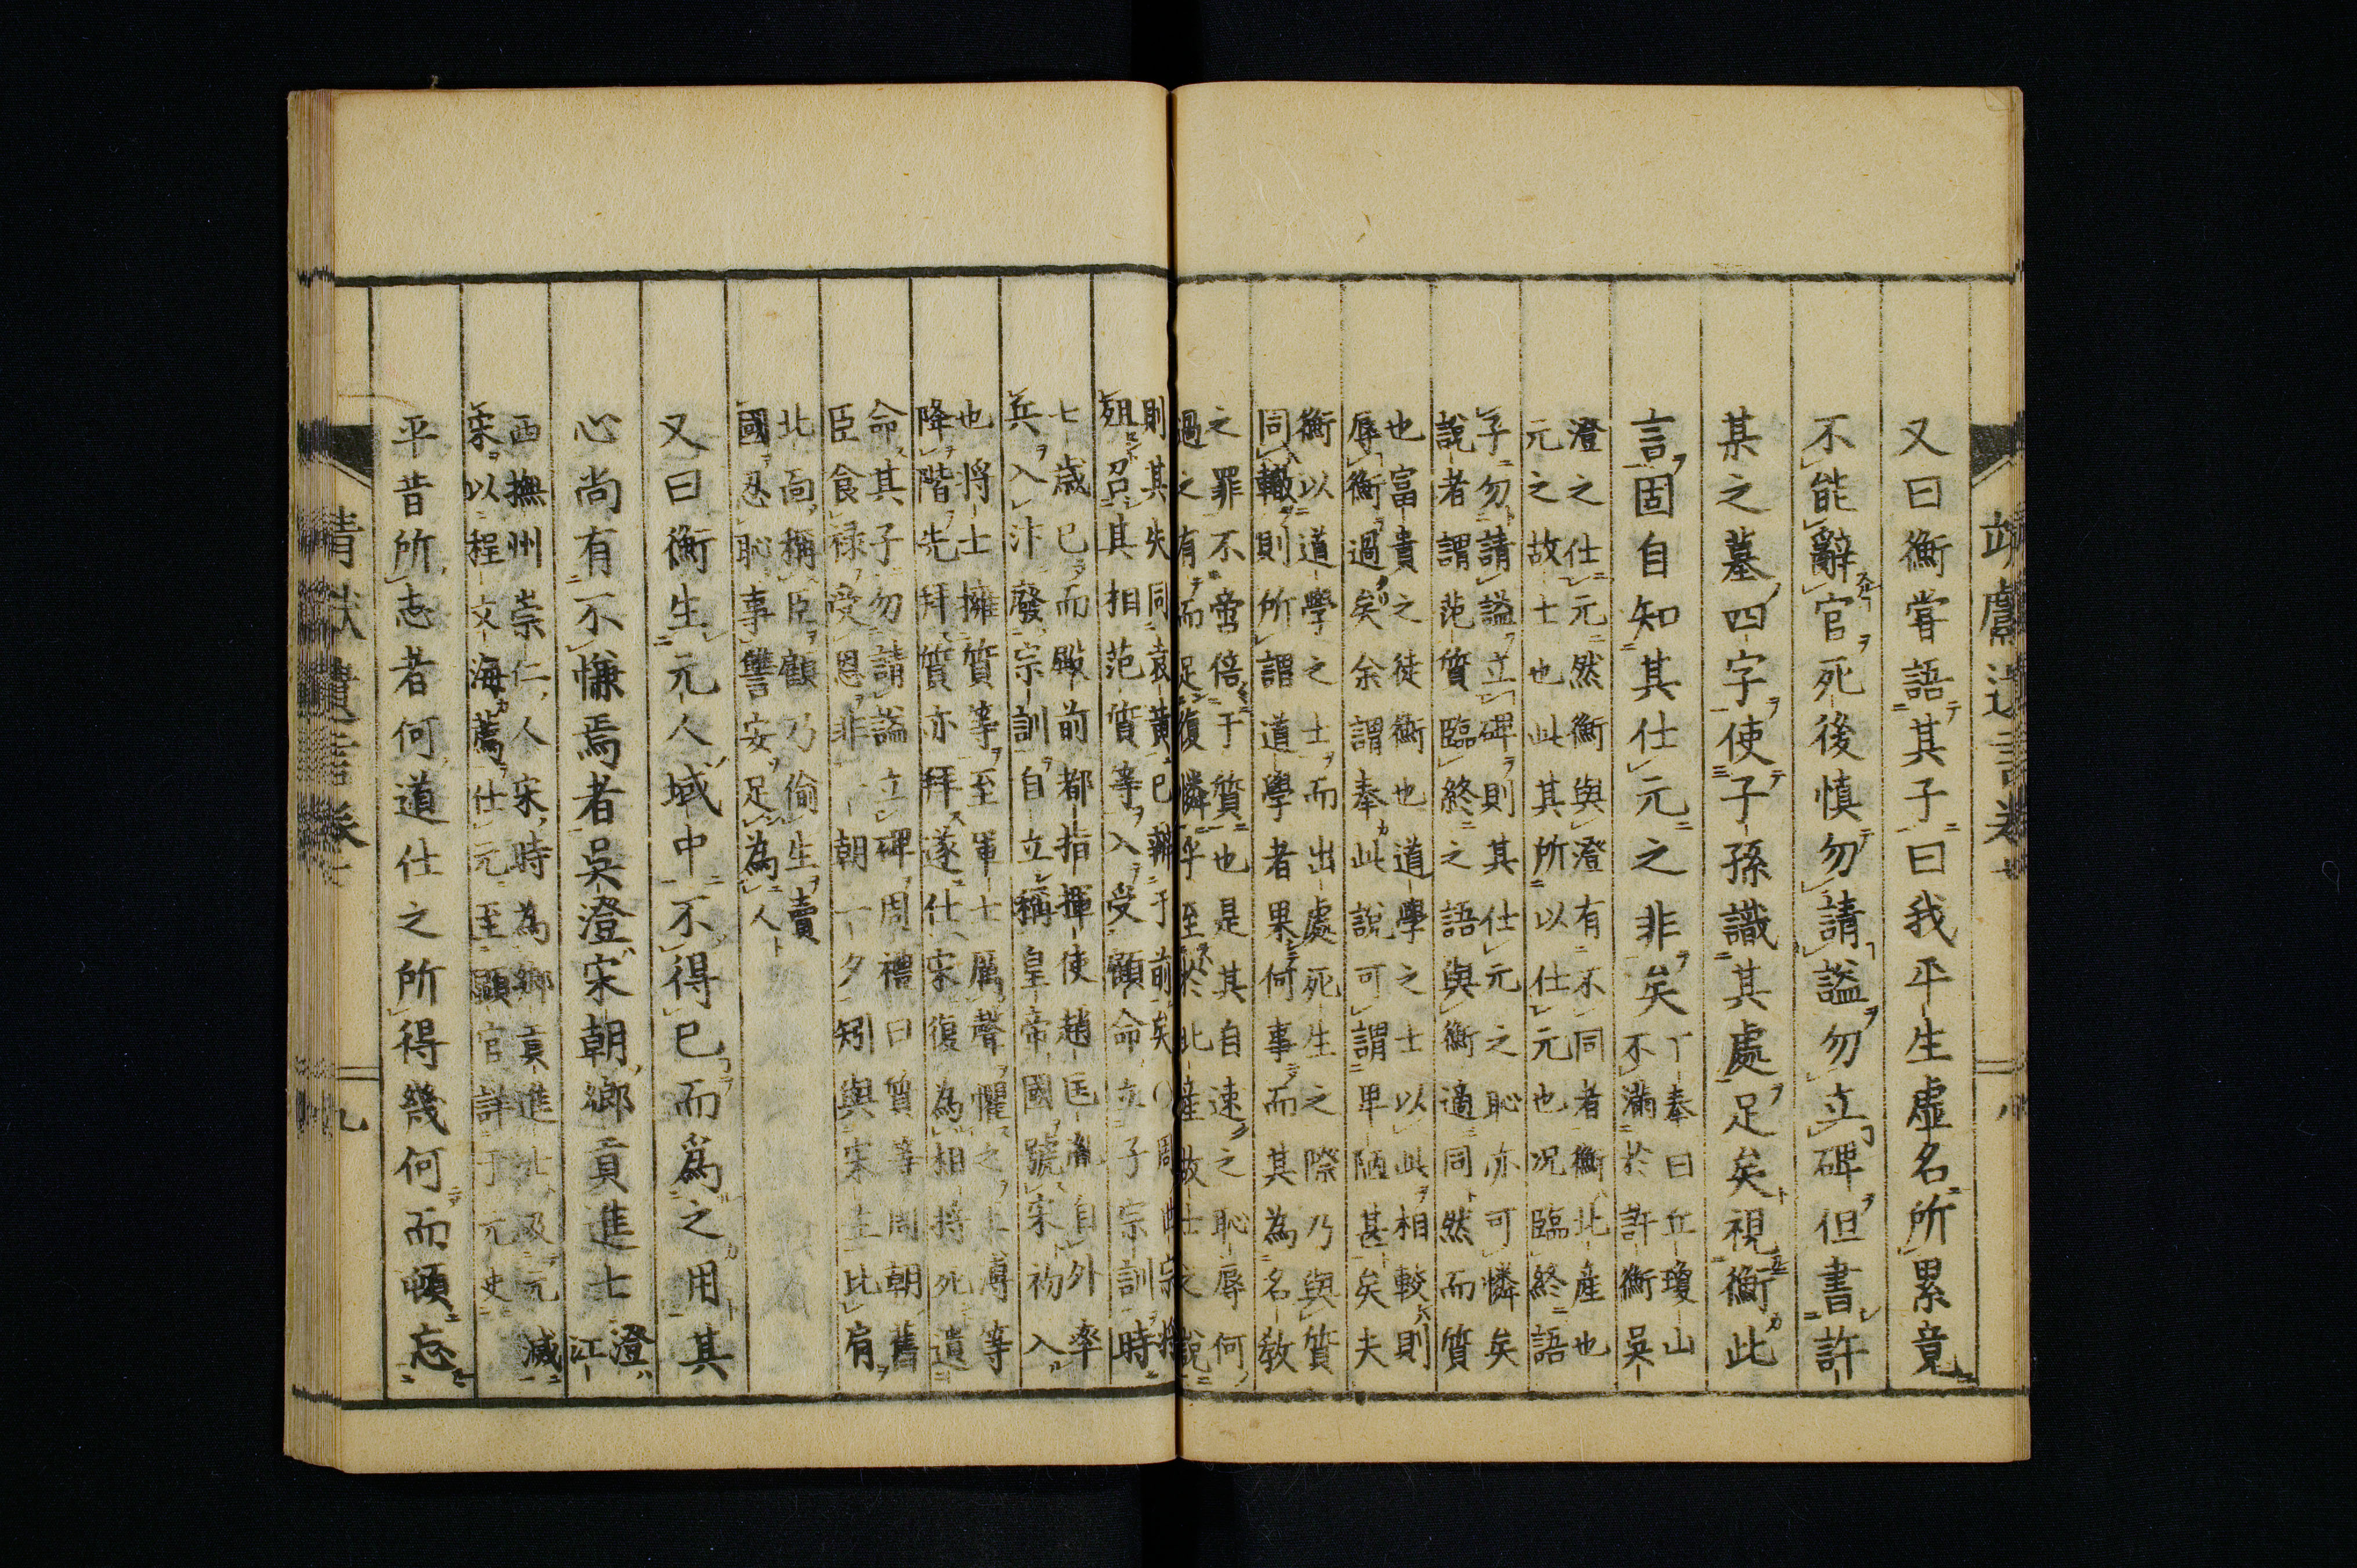 又曰衡甞語其子曰我平生虛名所累竟
不能辭官死後慎勿請謚勿立碑但書許
某之墓四字使子孫識其處足矣視衡此
言固自知其仕元之非矣
丁奉曰丘瓊山
不滿於許衡吳
澄之仕元然衡與澄有不同者衡北産也
元之故士也此其所以仕元也况臨終語
子勿請謚立碑則其仕元之恥亦可憐矣
說者謂范質臨終之語與衡適同然而質
也富貴之徒衡也道學之士以此相較則
辱衡過矣余謂奉此說可謂卑陋甚矣夫
衡以道學之士而出處死生之際乃與質
同轍則所謂道學者果何事而其為名教
之罪不啻倍于質也是其自速之恥辱何
過之有而足復憐乎至於北産故士之說
則其失同袁黃已辨于前矣
殂召其相范質等入受顧命立子宗訓時
七歲已而殿前都指揮使趙匡胤自外率
兵入汴廢宗訓自立稱皇帝國號宋初入
也將士擁質等至軍士厲聲懼之
降階先拜質亦拜遂仕宋復為相將死遺
命其子勿請謚立碑周禮曰質等周朝舊
臣食禄受恩非一朝一夕矧與宋主比肩
北面稱臣顧乃偷生賣
國忍恥事讐安足為人
又曰衡生元人域中不得已而爲之用其
心尚有不慊焉者吳澄宋朝鄉貢進士
澄江
西撫州崇仁人宋時為鄉貢進士及元滅
宋以程文海薦仕元至顯官詳于元史
平昔所志者何道仕之所得幾何而頓忘